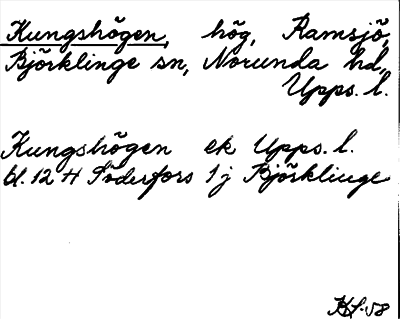 Kungshögen, hög, Ramsjö,
Björklinge sn, Norunda hd,
Upps. l.
Kungshögen ek Upps. l.
bl. 12 H Söderfors 1 j Björklinge